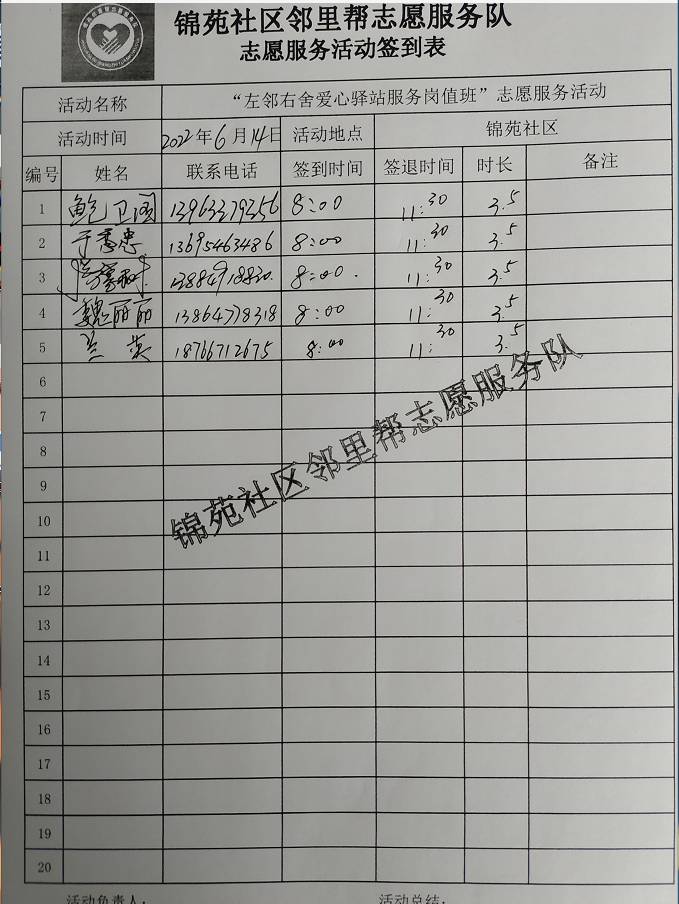 锦苑社区邻里帮志愿服务队
志愿服务活动签到表
活动名称 “左邻右舍爱心驿站服务岗值班”志愿服务活动
活动时间 2022年6月14日 活动地点 锦苑社区
编号 姓名 联系电话 签到时间 签退时间 时长 备注
1 鲍卫国 13963379356 8:00 11:30 3.5
2 于秀忠 13695463486 8:00 11:30 3.5
3 13884918830. 8:00. 11:30 3.5
4 魏丽丽 13864778318 8:00 11:30 3.5
5 兰英 18766712675 8:00 11:30 3.5
6
7
8
9
10
11
12
13
14
15
16
17
18
19
20
锦苑社区邻里帮志愿服务队
活动负责人: 活动总结: